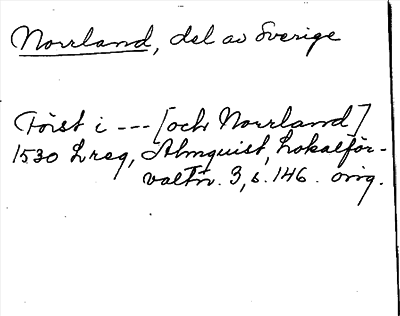 Norrland, del av Sverige
Först i --- [och Norrland]
1530 Lreg, Almquist, Lokalför-
valtn. 3, s. 146. orig.